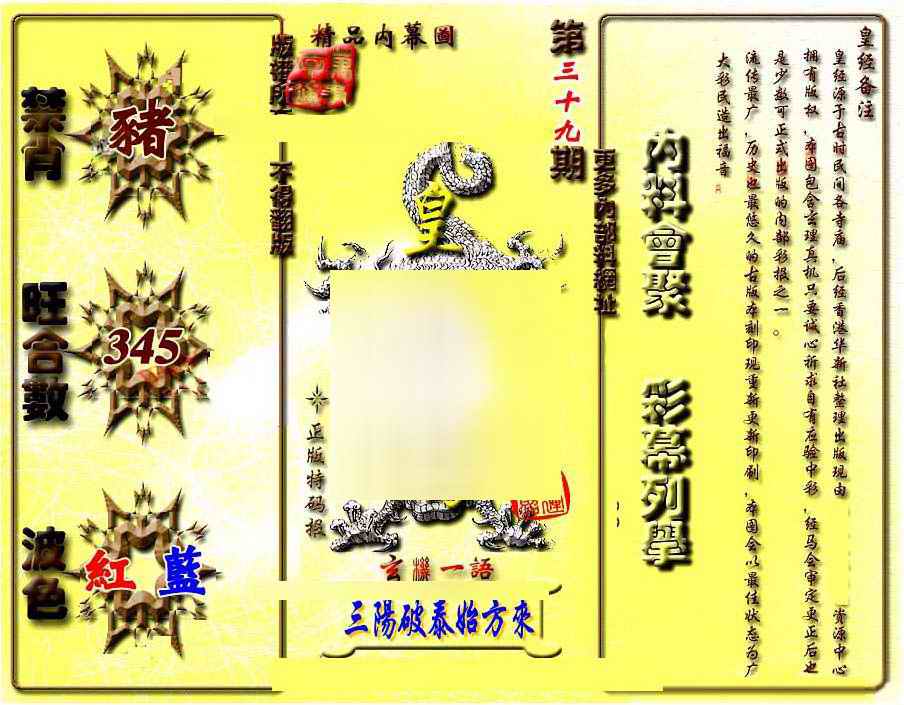 精品内幕圖
第三十九期
版權所
不得翻版
禁肖
豬
旺合數
345
波色
紅 藍
皇
正版特码报
玄機一語
三陽破泰始方來
更多内部料網址
内料會聚
彩幕列舉
皇经备注
皇经源于古时民间各寺庙,后经香港华新社整理出版现由
资源中心
拥有版权,本图包含玄理真机只要诚心祈求自有应验中彩,经马会审定更正后也
是少数可正式出版的内部彩报之一。
流传最广,历史也最悠久的古版本刻印现重新更新印刷,本图会以最佳状态为广
大彩民造出福音